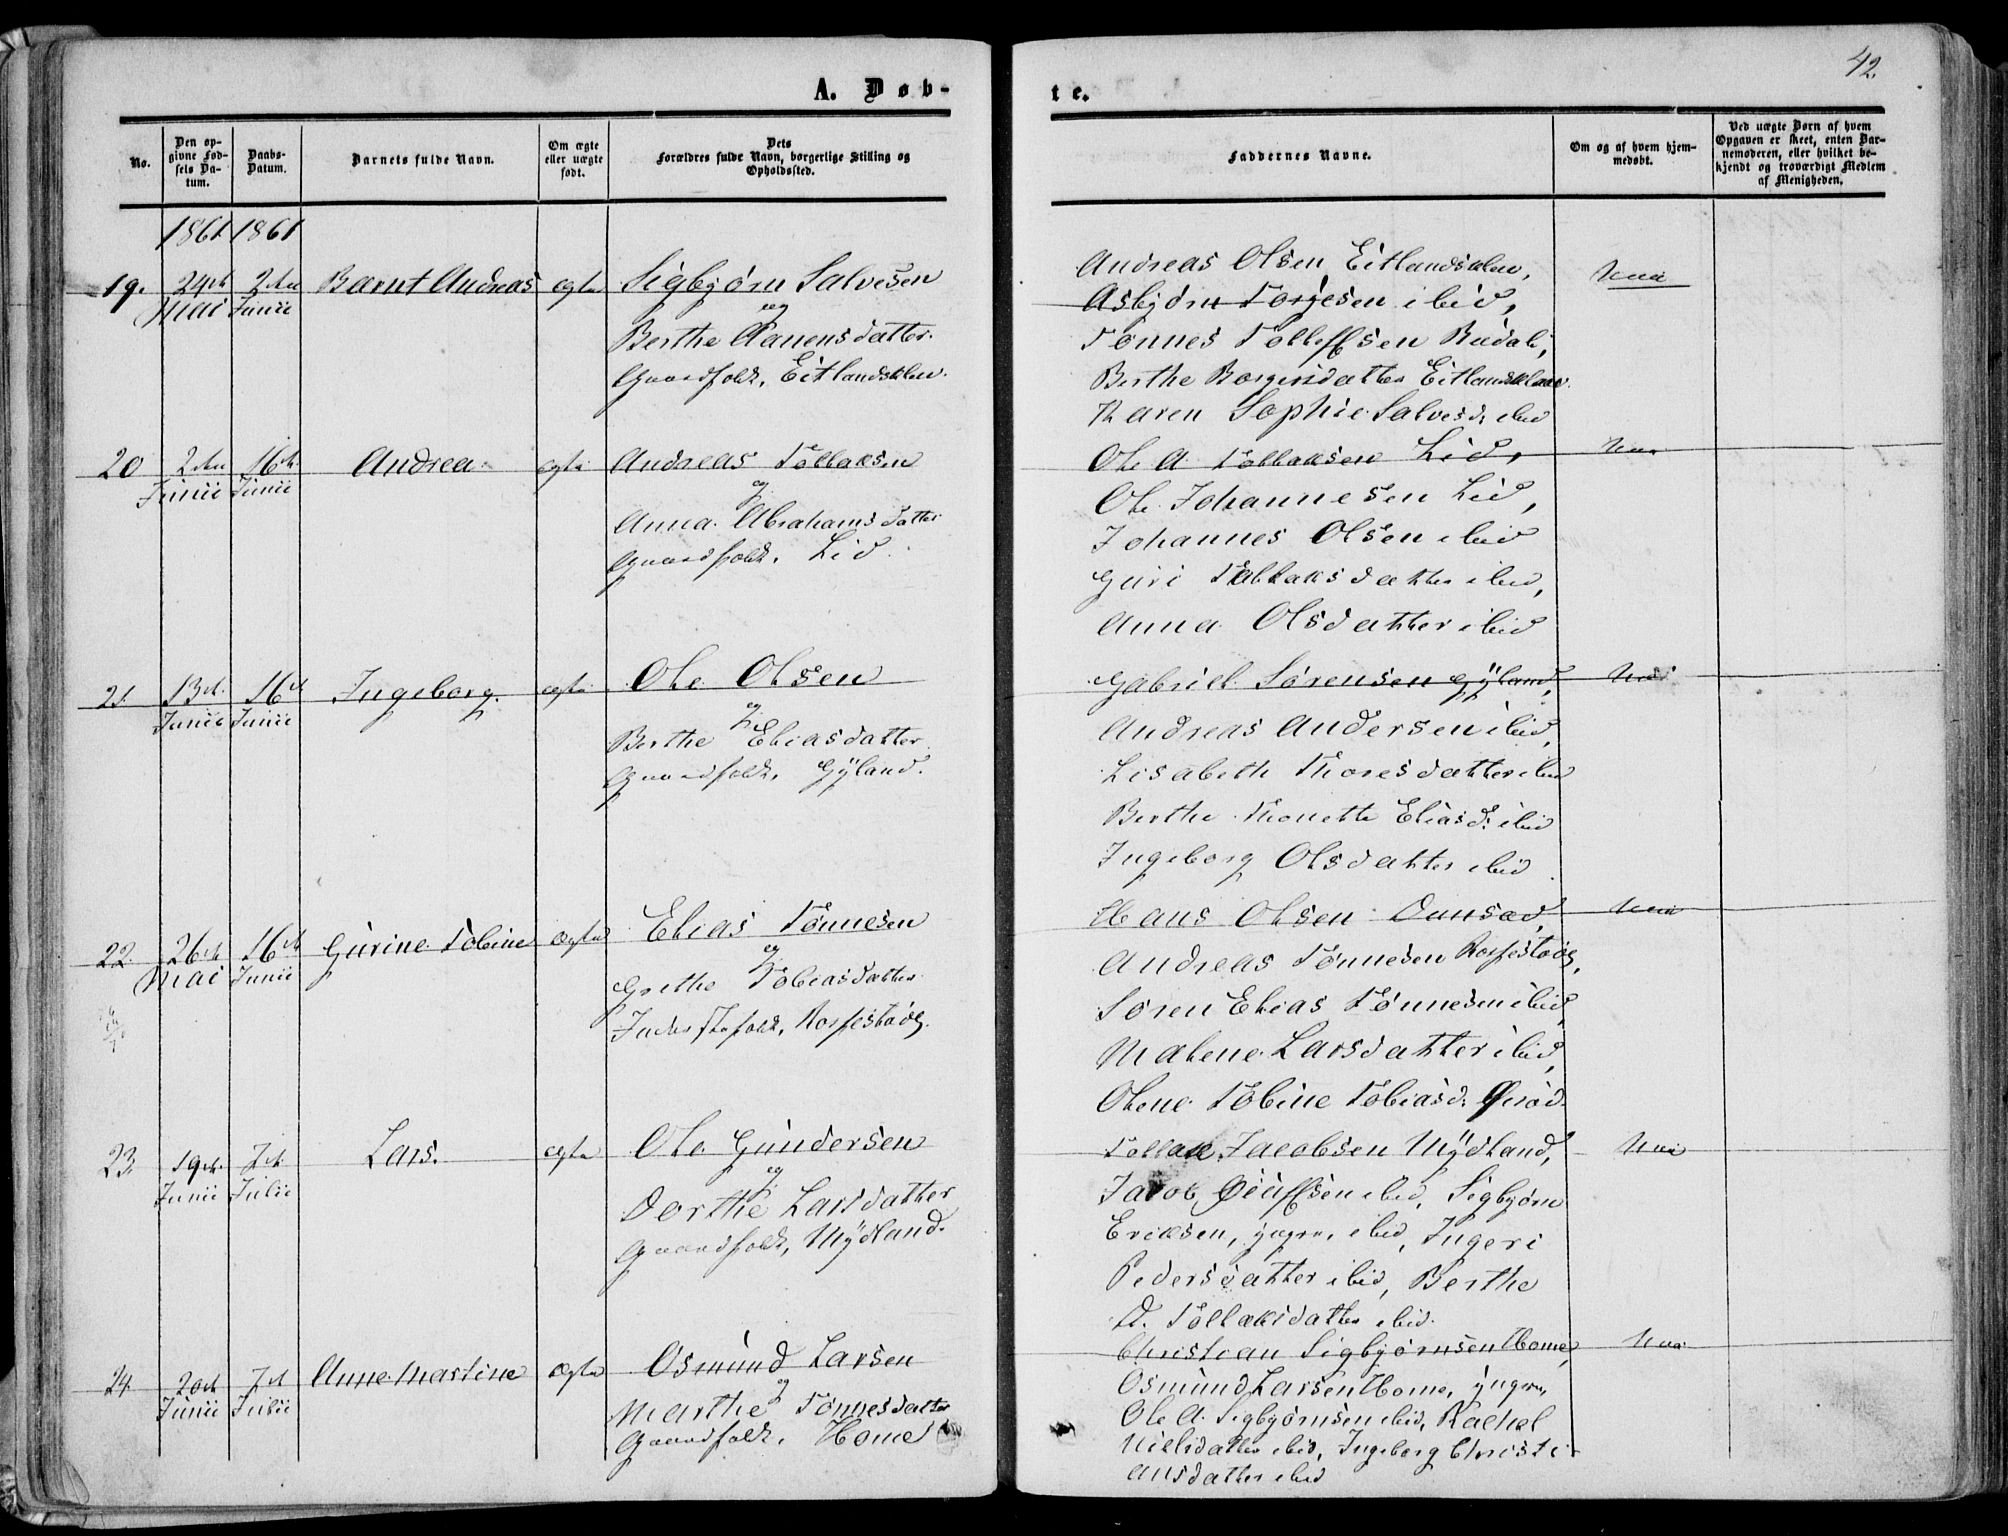 42.
A. Døb-
te.
No.
Den op-
givne Fød-
sels Da-
tum.
Daabs-
Datum.
Barnets fulde Navn.
Om ægte
eller uægte
født.
Dets
Forældres fulde Navn, borgerlige Stilling og
Opholdssted.
Faddernes Navne.
Om og af hvem hjem-
medøbt.
Ved uægte Børn af hvem
Opgaven er skeet, enten Bar-
nemoderen, eller hvilket be-
kjendt og troværdigt Medlem
af Menigheden.
1861 1861
19. 24de 2den Barnt Andreas ægte Sigbjørn Salvesen
Mai Junii og
Berthe Aanensdatter
Gaardfolk, Eitlandsklev.
Andreas Olsen Eitlandsklev,
Asbjørn Torjesen ibid,
Tønnes Tolleffsen Rudali,
Berthe Borgersdatter Eitlandsklev
Karen Sophie Salvesd. ibid
Nei
20 2den 16de Andrea ægte Andreas Tollaksen
Junii Junii og
Anna Abrahamsdatter
Gaardfolk, Lid
Ole A. Tollaksen Lid,
Ole Johannesen Lid,
Johannes Olsen ibid
Guri Tollaksdatter ibid,
Anna Olsdatter ibid
Nei
21. 13de 16de Ingeborg. ægte Ole Olsen
Junii Junii og
Berthe Eliasdatter
Gaardfolk, Gÿland.
Gabriel Sørensen Gÿland,
Andreas Andersen ibid,
Lisabeth Thoresdatter ibid
Berthe Thonette Eliasd. ibid
Ingeborg Olsdatter ibid
Nei
22. 26de 16de Gurine Tobine Ægte Elias Tønnesen
Mai Junii og
Grethe Tobiasdatter
Inderstefolk, Rossestøøl.
Hans Olsen Dunsæd,
Andreas Tønnesen Rossestøøl,
Søren Elias Tønnesen ibid,
Malene Larsdatter ibid,
Olene Tobine Tobiasd.
Nei
23. 19de 7de Lars. ægte Ole Gundersen
Junii Julii og
Dorthe Larsdatter
Gaardfolk, Mÿdland.
Tollak Jacobsen Mÿdland,
Jacob ibid, Sigbjørn
Eriksen, yngre, ibid, Ingeri
Pedersdatter ibid, Berthe
D. Tollaksdatter ibid.
Nei
24. 20de 7de Anne Martine Ægte Osmund Larsen
Junii Julii og
Marthe Tønnesdatter
Gaardfolk, Home
Christian Sigbjørnsen Home,
Osmund Larsen Home, yngre,
Ole A. Sigbjørnsen ibid, Rachel
Nielsdatter ibid, Ingeborg Christi-
ansdatter ibid
Nei